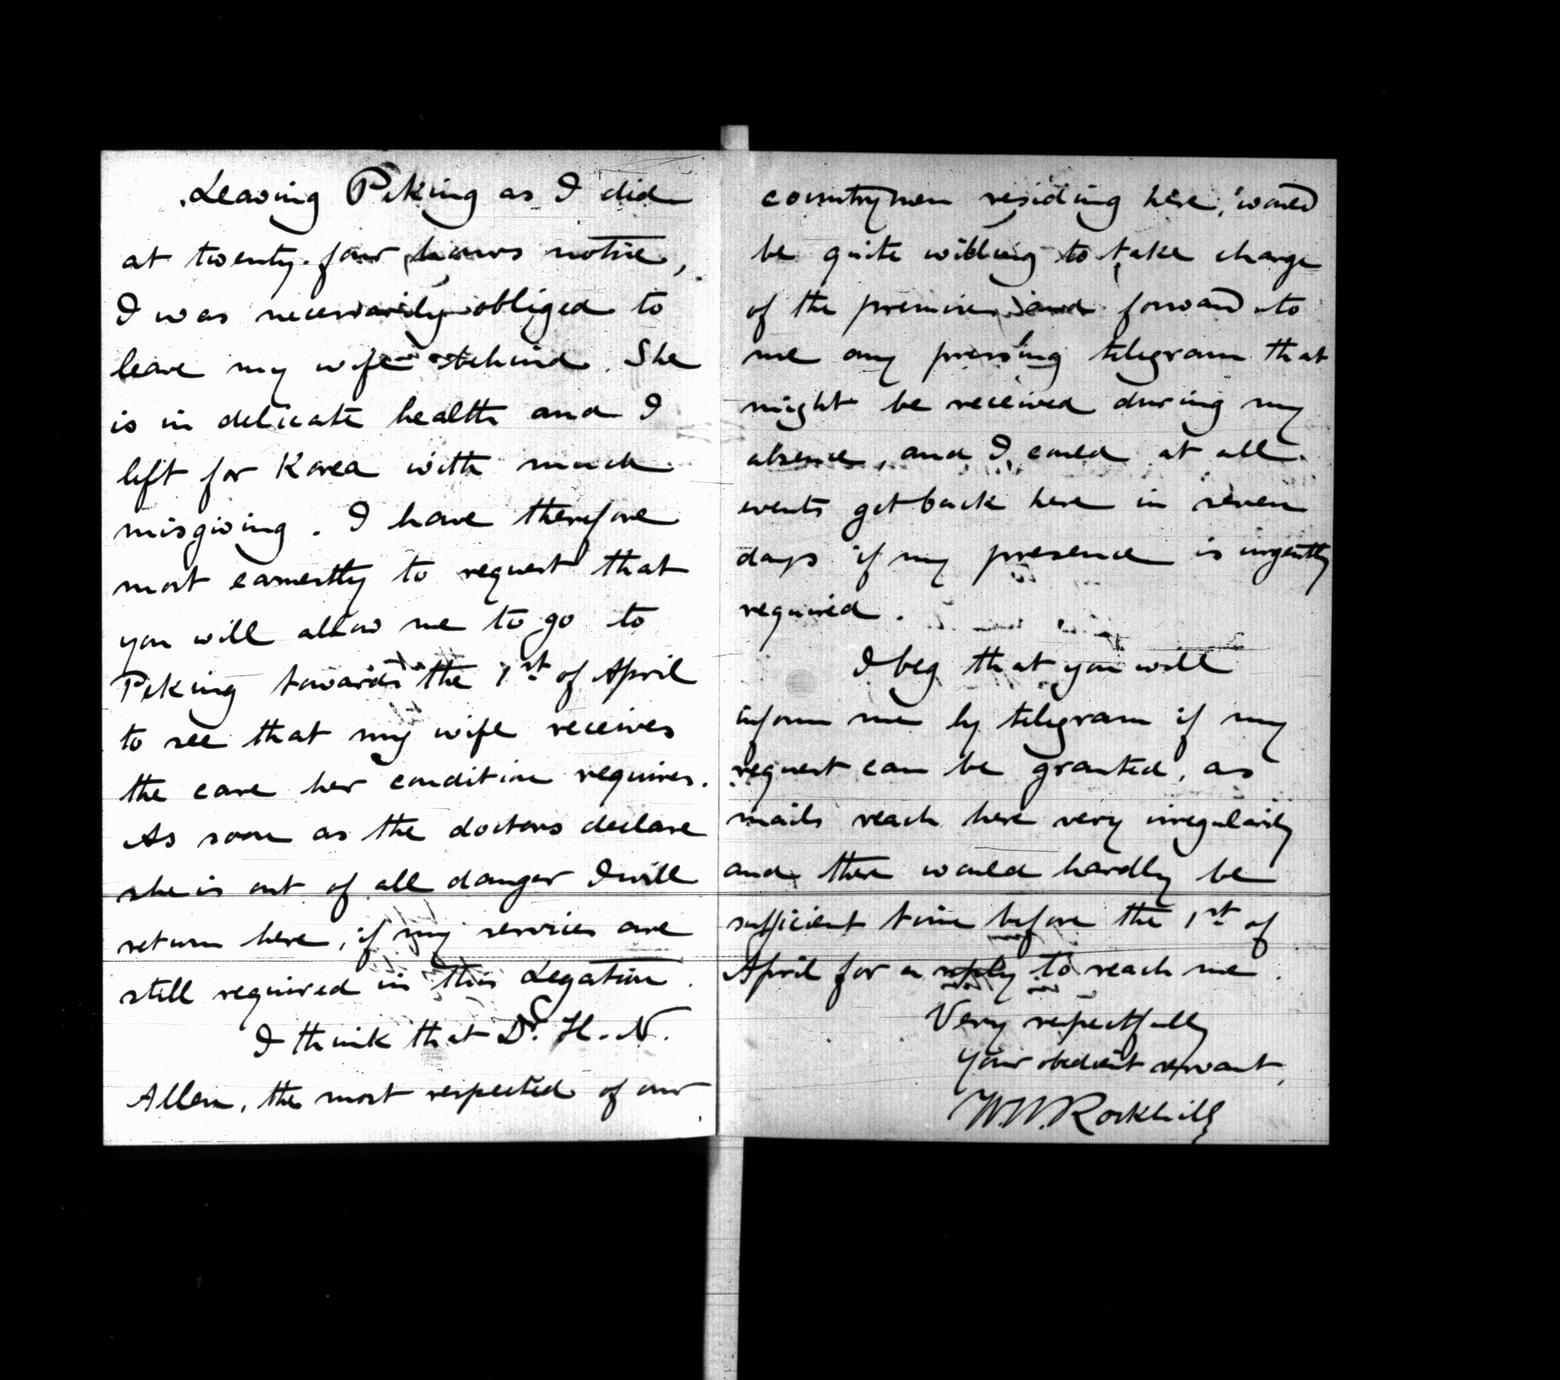 Leaving Peking as I did
at twenty-four hours notice,
I was necessarily obliged to
leave my wife behind. She
is in delicate health and I
left for Korea with much
misgiving. I have therefore
most earnestly to request that
you will allow me to go to
Peking towards the 1st of April
to see that my wife receives
the care her condition requires.
As soon as the doctors declare
she is out of all danger I will
return here, if my services are
still required in this Legation.
I think that Dr. H. N.
Allen, the most respected of our
countrymen residing here, would
be quite willing to take charge
of the premises and forward to
me any pressing telegram that
might be received during my
absence, and I could at all
events get back here in seven
days if my presence is urgently
required.
I beg that you will
inform me by telegram if my
request can be granted, as
mails reach here very irregularly
and there would hardly be
sufficient time before the 1st of
April for a reply to reach me.
Very respectfully
your obedient servant,
W. W. Rockhill